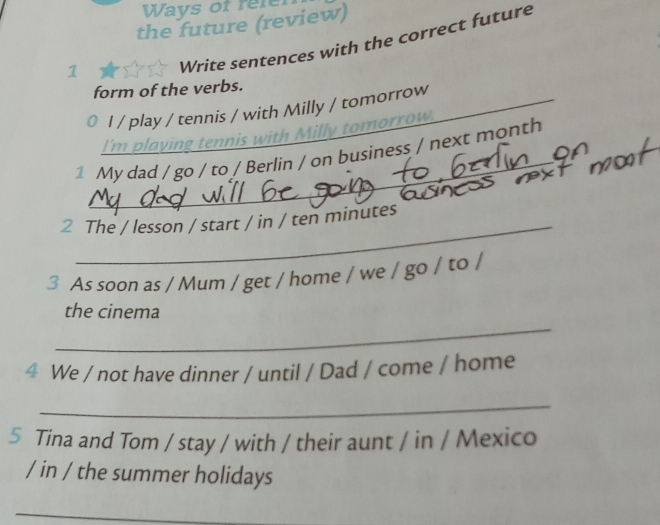 Ways of
the future (review)
1 Write sentences with the correct future
form of the verbs.
0 I / play / tennis / with Milly / tomorrow
I'm playing tennis with Milly tomorrow.
1 My dad / go / to / Berlin / on business / next month
My dad will be going to Berlin on
business next moat
2 The / lesson / start / in / ten minutes
3 As soon as / Mum / get / home / we / go / to /
the cinema
4 We / not have dinner / until / Dad / come / home
5 Tina and Tom / stay / with / their aunt / in / Mexico
/ in / the summer holidays